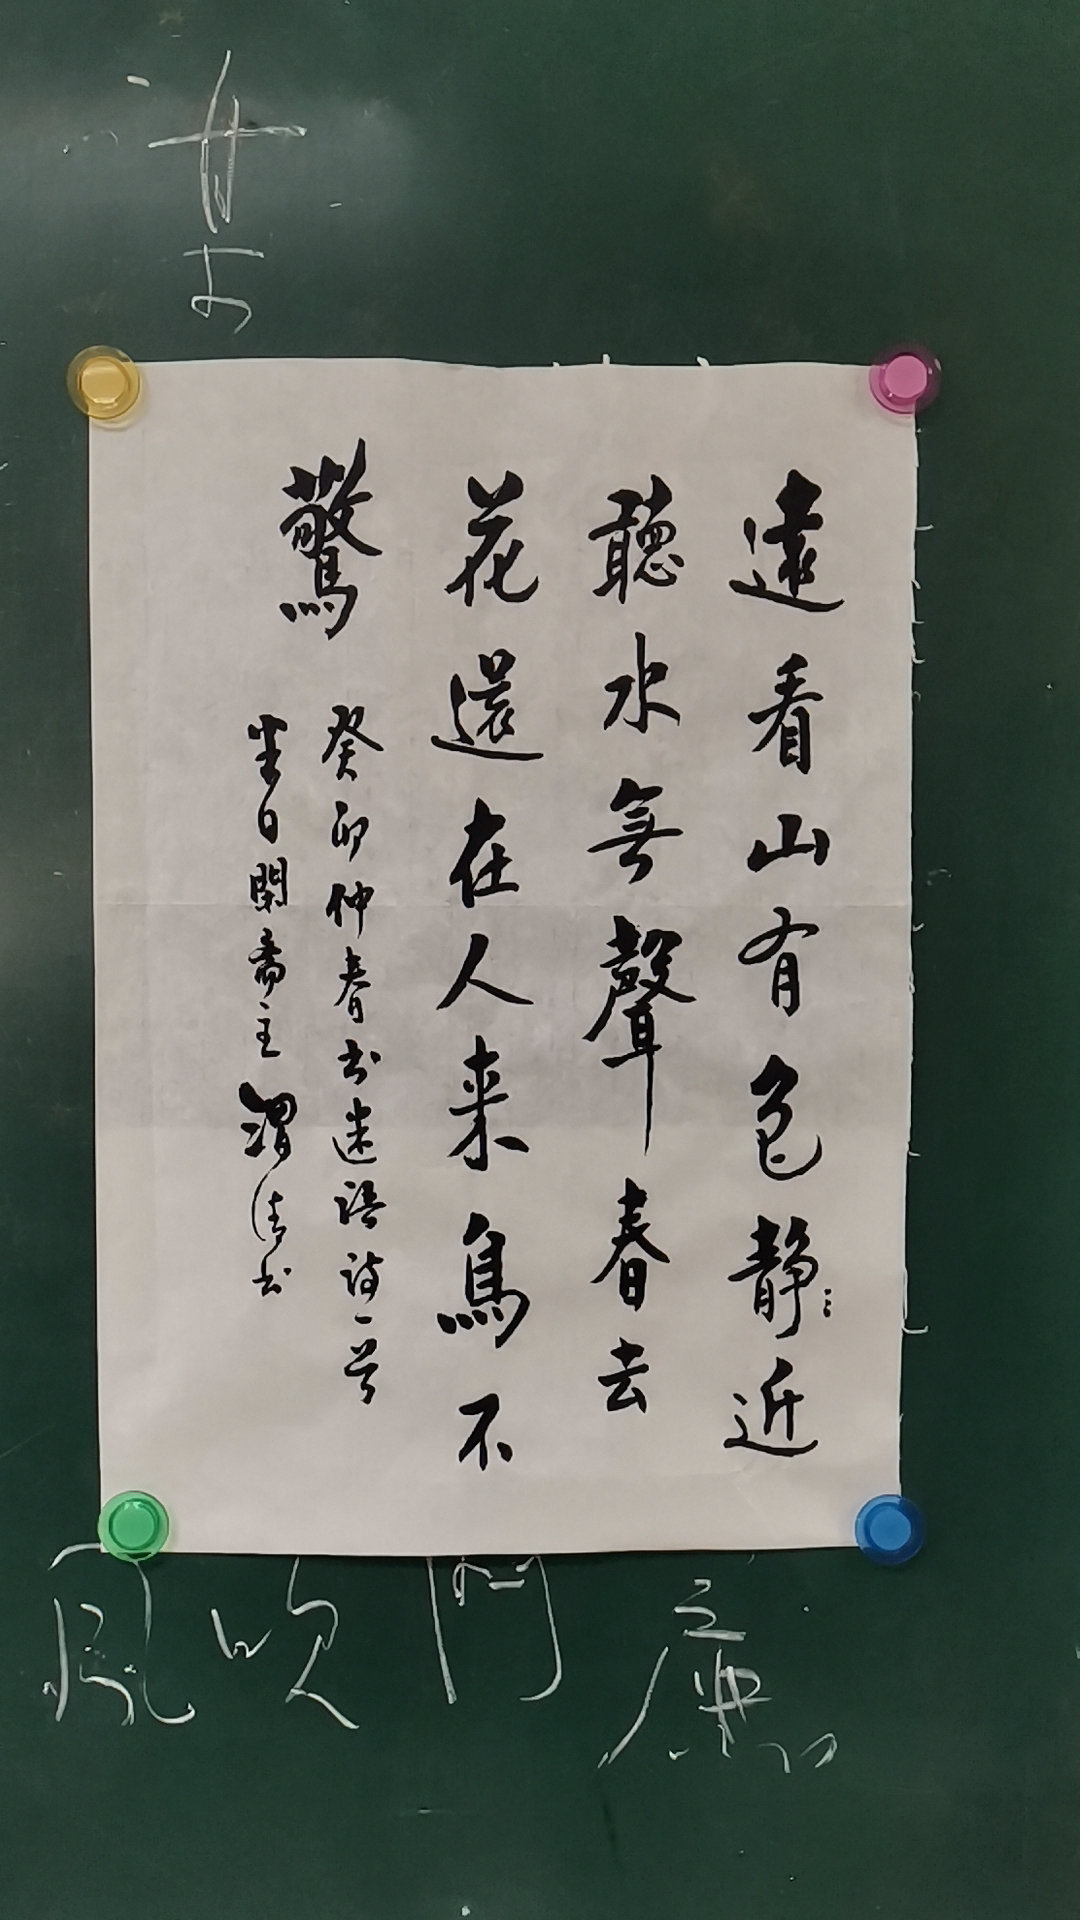 遠看山有色靜⋮近
聽水無聲春去
花還在人来鳥不
驚
癸卯仲春书迷語詩一首
半日閑斋主渭清书
風吹門